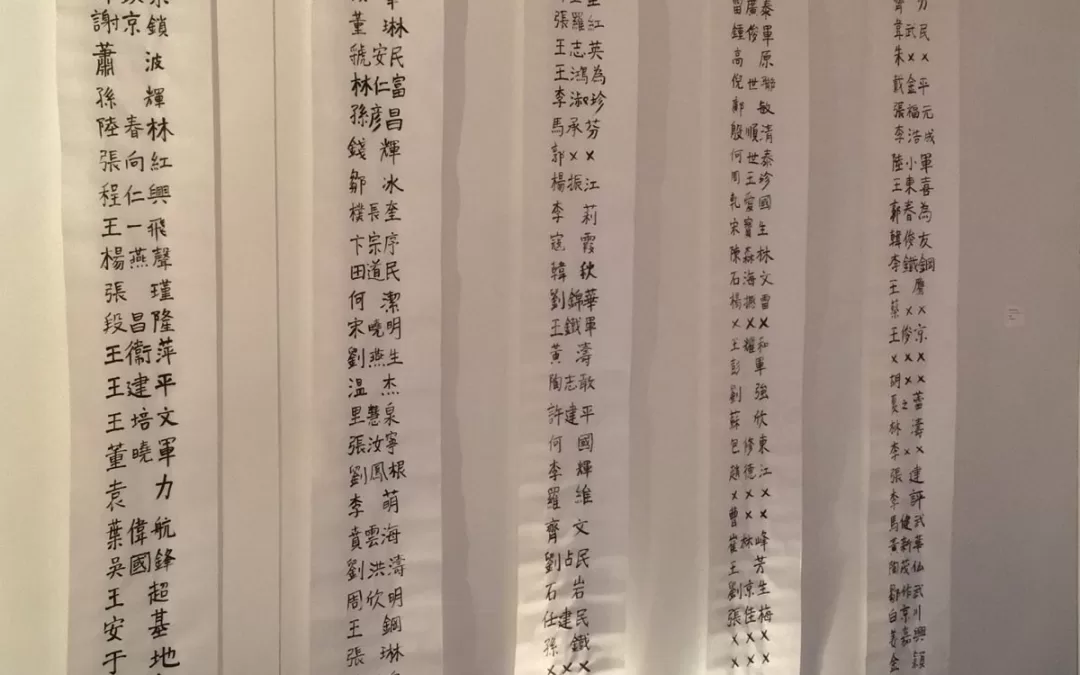 謝京鎖
蕭波
孫輝
陸春林
張向紅
程仁興
王一飛
楊燕聲
張瑾
段昌隆
王衛萍
王建平
王培文
董曉軍
袁力
葉偉航
吳國鋒
王超
安基
于地
董琳
虢安民
林仁富
孫彥昌
錢輝
鄒冰
樸長奎
卞宗序
田道民
何潔
宋曉明
劉燕生
溫杰
里慧泉
張汝寧
劉鳳根
李萌
賁雲海
劉洪濤
周欣明
王鋼
張琳
張羅紅
王志英
王鴻為
李淑珍
馬承芬
郭××
楊振江
李莉
寇霞
韓秋
劉錦華
王鐵軍
黃濤
陶志敢
許建平
何國
李輝
羅維
齊文
劉占民
石岩
任建民
孫鐵
×××
雷廣泰
鍾俊軍
高原
倪世聯
鄭敏
殷順清
何世泰
周王珍
孔愛國
宋寶生
陳森林
石海文
楊振雷
×××
王耀和
彭軍
劉強
蘇欣
包修東
趙德江
×××
曹××
崔林峰
王芳
劉京生
張佳梅
×××
×××
齊力
韋武民
朱××
戴金平
張福元
李浩成
陸小軍
王東喜
郭春為
韓俊友
李鐵鋼
王
蔡××
王俊京
×××
胡××
夏之蕾
林濤
李××
張建
李評
馬健武
黃新華
陶茂仙
鄒作武
白京川
姜嘉興
金穎